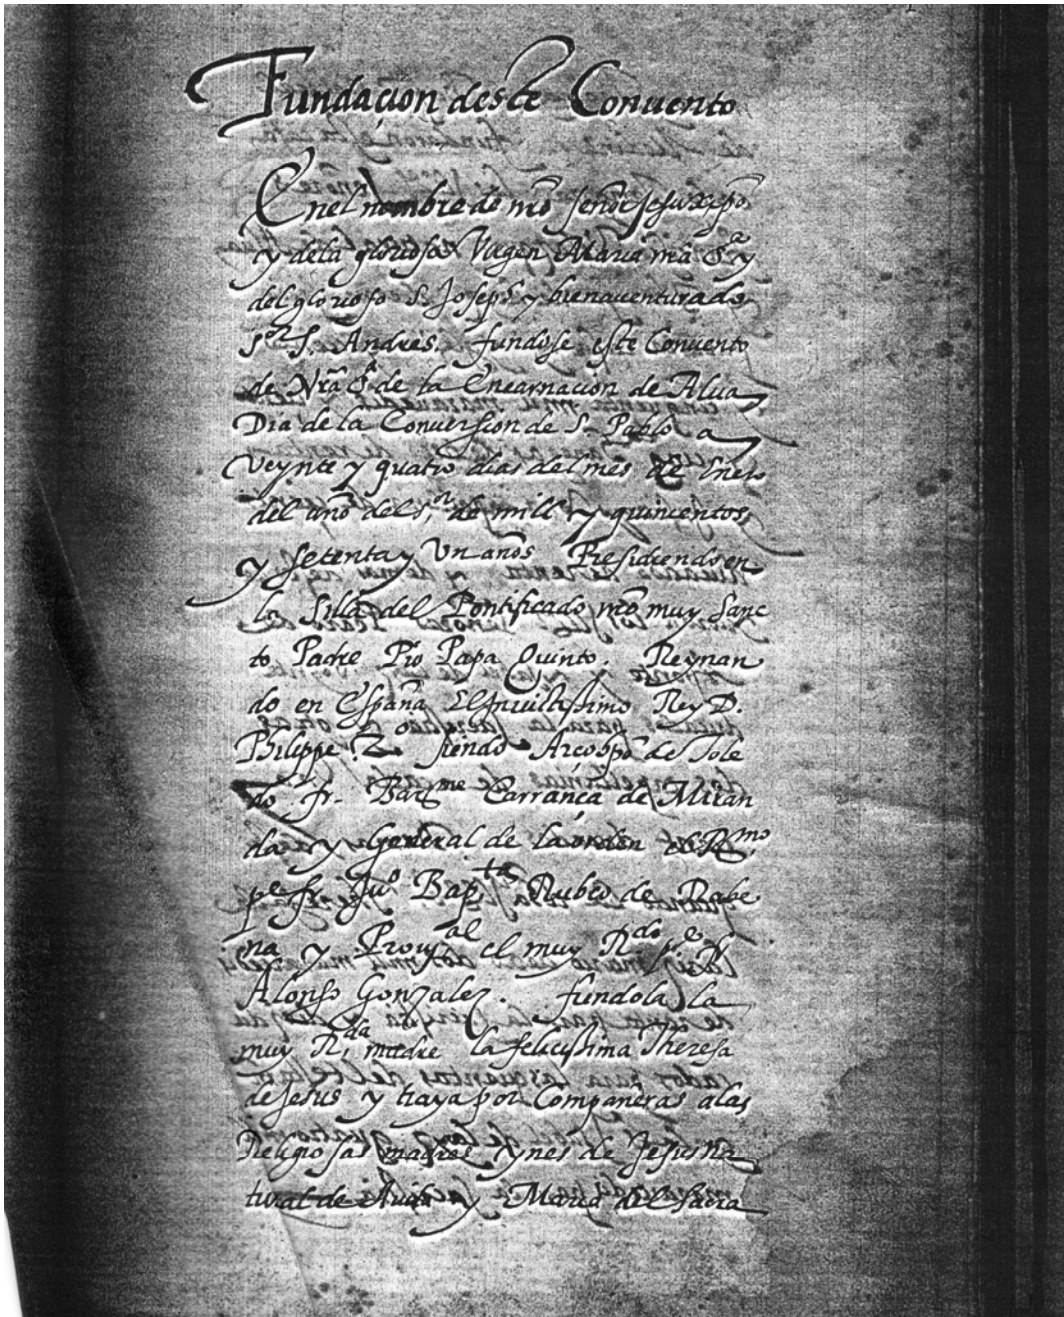 Fundaçion deste Conuento
En el nombre de nr̃o señor Jesuxp̃o
y de la gloriosa Virgen Maria nr̃a Sª y
del glorioso S. Joseph y bienauenturado
Sor S. Andres. fundose este Conuento
de Nr̃a Sª de la Encarnacion de Alua
Dia de la Conuersion de S. Pablo a
veynte y quatro dias del mes de Enero
del año del Sor de mill y quinientos
y setenta y Un años Presidiendo en
la Silla del Pontificado nr̃o muy Sanc
to Padre Pio Papa Quinto. Reynan
do en España El Inuictissimo Rey D.
Philippe 2 siendo Arçobpõ de Tole
do fr. Barme Carrança de Miran
da y General de la orden el Rmo
pe fr. Juº Bapta Rubeo de Rabe
na y Prouyal el muy Rdo pe fr
Alonso Gonzalez. fundola la
muy Rda madre la felicissima Theresa
de Jesus y traya por Compañeras a las
Religiosas madres Ynes de Jesus na
tural de Auila y Maria del Sacra